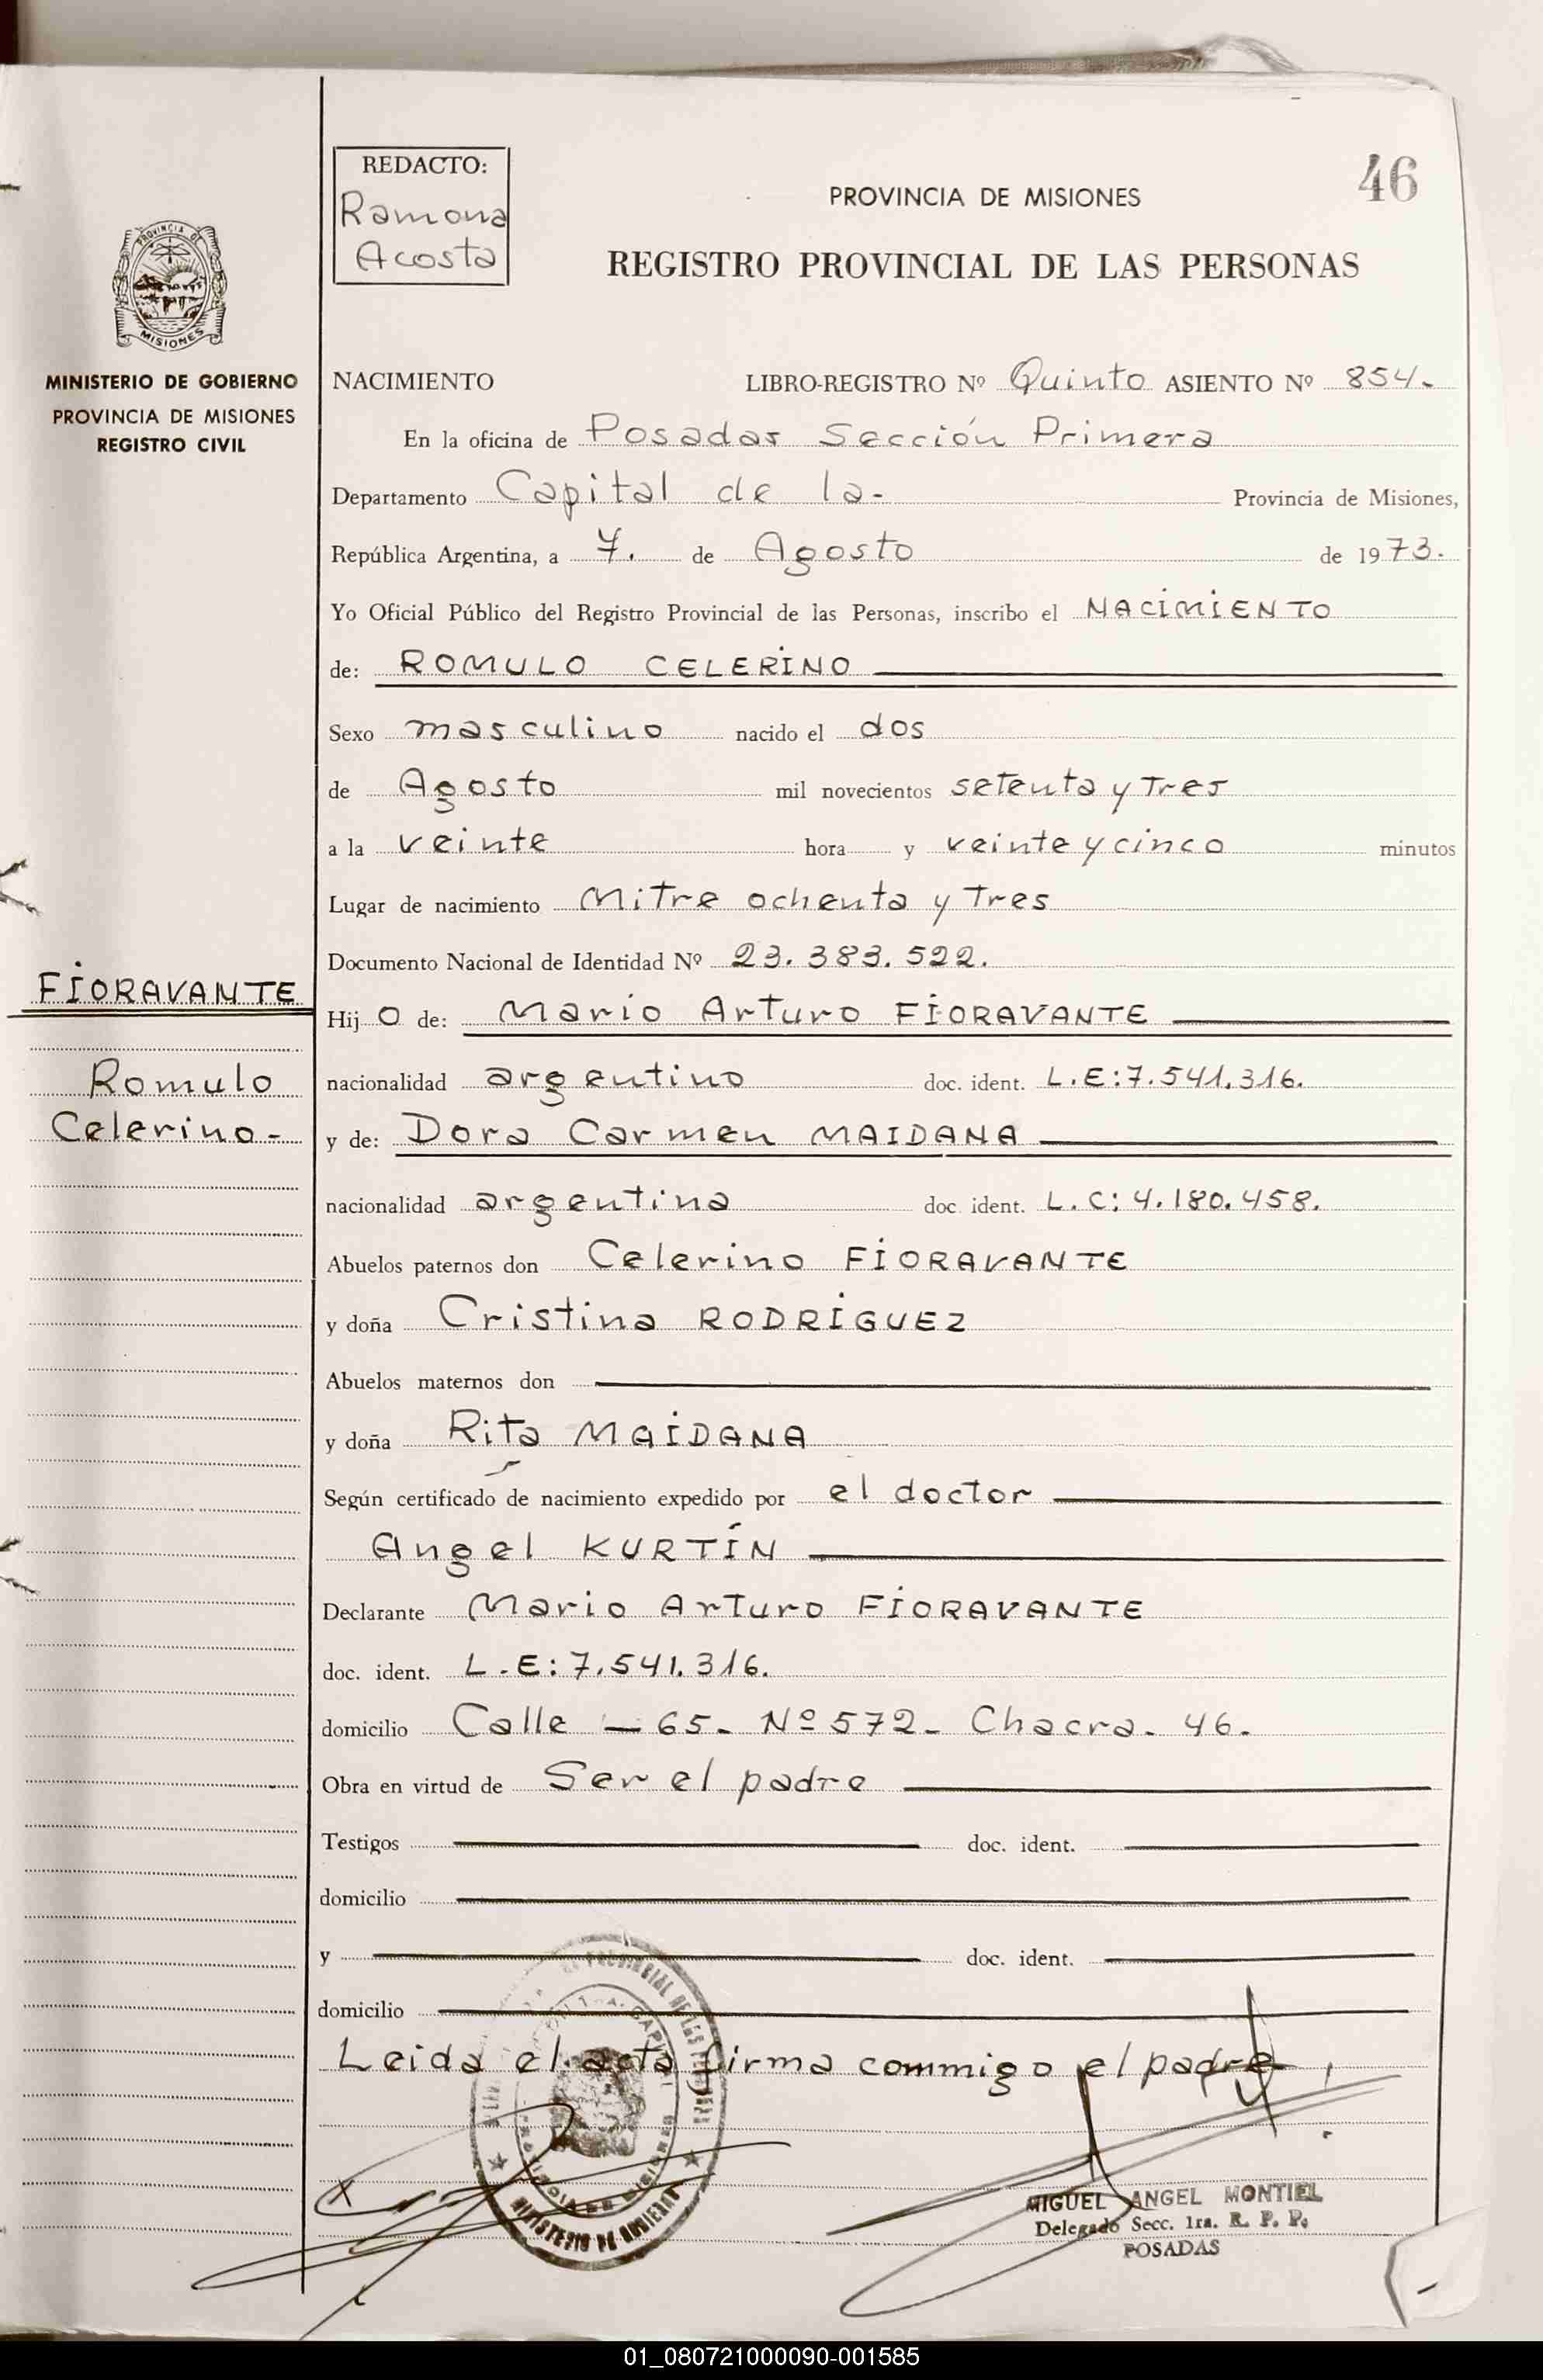 46
REDACTO:
Ramona
Acosta
PROVINCIA DE MISIONES
REGISTRO PROVINCIAL DE LAS PERSONAS
PROVINCIA DE
MISIONES
MINISTERIO DE GOBIERNO
PROVINCIA DE MISIONES
REGISTRO CIVIL
NACIMIENTO LIBRO-REGISTRO Nº Quinto ASIENTO Nº 854.
En la oficina de Posadas Sección Primera
Departamento Capital de la- Provincia de Misiones,
República Argentina, a 7. de Agosto de 1973.
Yo Oficial Público del Registro Provincial de las Personas, inscribo el NACIMIENTO
de: ROMULO CELERINO
Sexo masculino nacido el dos
de Agosto mil novecientos setenta y Tres
a la veinte hora y veinte y cinco minutos
Lugar de nacimiento Mitre ochenta y Tres
Documento Nacional de Identidad Nº 23.383.522.
FIORAVANTE
Romulo
Celerino-
Hij o de: Mario Arturo FIORAVANTE
nacionalidad argentino doc. ident. L.E:7.541.316.
y de: Dora Carmen MAIDANA
nacionalidad argentina doc. ident. L.C:4.180.458.
Abuelos paternos don Celerino FIORAVANTE
y doña Cristina RODRIGUEZ
Abuelos maternos don
y doña Rita MAIDANA
Según certificado de nacimiento expedido por el doctor
Angel KURTÍN
Declarante Mario Arturo FIORAVANTE
doc. ident. L.E:7.541.316.
domicilio Calle - 65- Nº572- Chacra- 46.
Obra en virtud de Ser el padre
Testigos doc. ident.
domicilio
y doc. ident.
domicilio
Leida el acta firma commigo el padre
MINISTERIO DE GOBIERNO
MIGUEL ANGEL MONTIEL
Delegado Secc. 1ra. R. P. P.
POSADAS
01_080721000090-001585